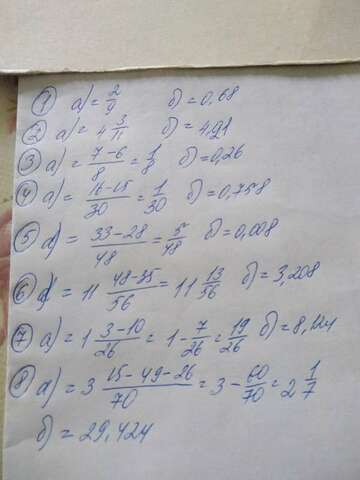 ① а) = 2/9 б) = 0,68
② а) = 4 3/11 б) = 4,91
③ а) = (7-6)/8 = 1/8 б) = 0,26
④ а) = (16-15)/30 = 1/30 б) = 0,758
⑤ а) = (33-28)/48 = 5/48 б) = 0,008
⑥ а) = 11 (48-35)/56 = 11 13/56 б) = 3,208
⑦ а) = 1 (3-10)/26 = 1 - 7/26 = 19/26 б) = 8,124
⑧ а) = 3 (15-49-26)/70 = 3 - 60/70 = 2 1/7
б) = 29,424